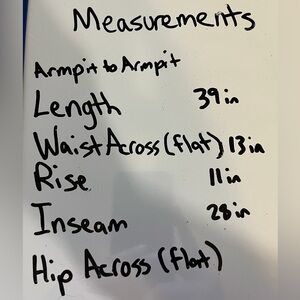 Measurements
Armpit to Armpit
Length 39in
Waist Across (flat) 13in
Rise 11in
Inseam 28in
Hip Across (flat)